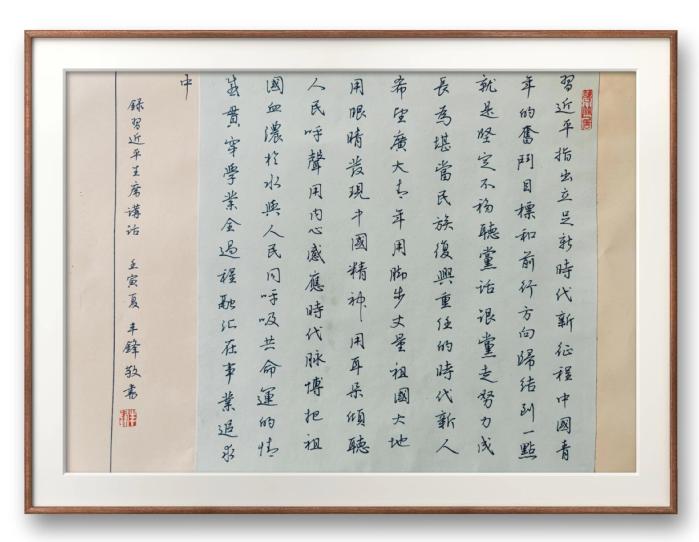 習近平指出立足新時代新征程中國青
年的奮鬥目標和前行方向歸结到一點
就是堅定不移聽黨话跟黨走努力成
長為堪當民族復興重任的時代新人
希望廣大青年用脚步丈量祖國大地
用眼睛發現中國精神用耳朵傾聽
人民呼聲用内心感應時代脉博把祖
國血濃於水與人民同呼吸共命運的情
感貫穿學業全過程融汇在事業追求
中
錄習近平主席講话 壬寅夏 鋒敬書